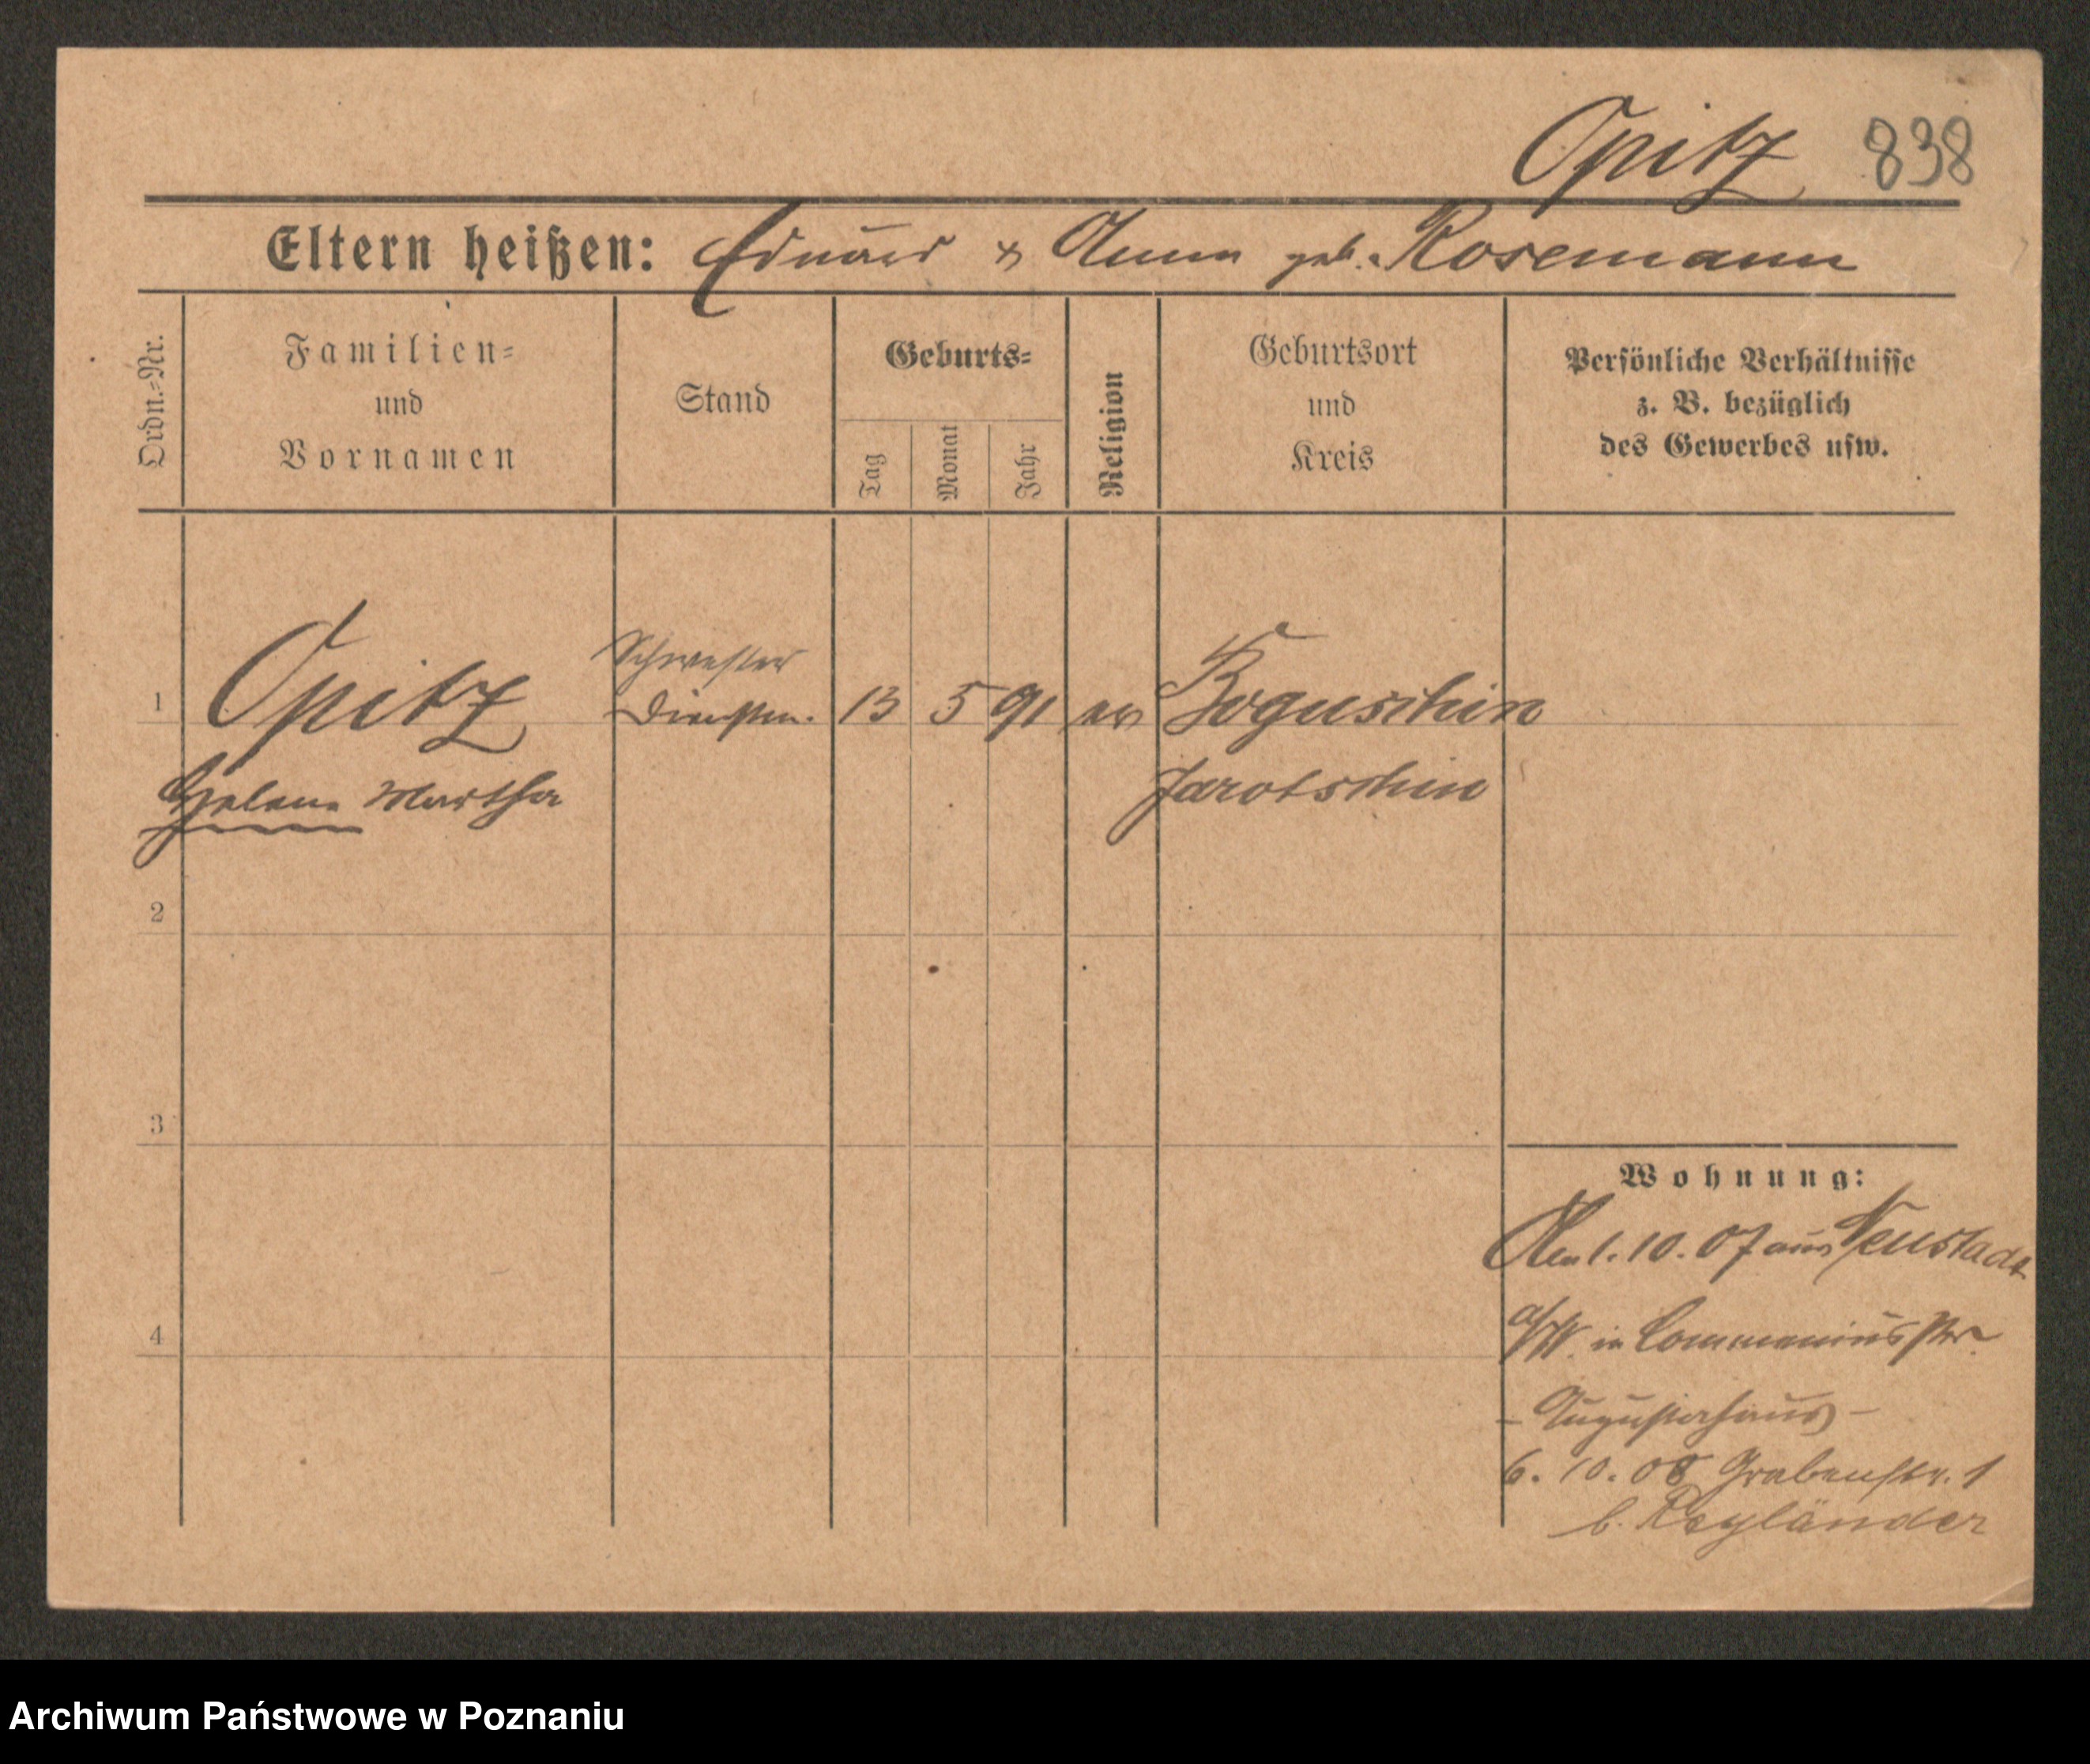 Opitz 838
Eltern heißen: Eduard & Anna geb. Rosemann
Ordn.-Nr.
Familien-
und
Vornamen
Stand
Geburts-
Tag
Monat
Jahr
Religion
Geburtsort
und
Kreis
Persönliche Verhältnisse
z. B. bezüglich
des Gewerbes usw.
Schwester
1 Opitz Dienstm. 13 5 91 ev Boguschin
Helene Martha Jarotschin
2
3
4
Wohnung:
Am 1. 10. 07 aus Neustadt
a/W. in Commeniusstr.
- Augustahaus -
6. 10. 08 Grabenstr. 1
b. Reyländer
Archiwum Państwowe w Poznaniu